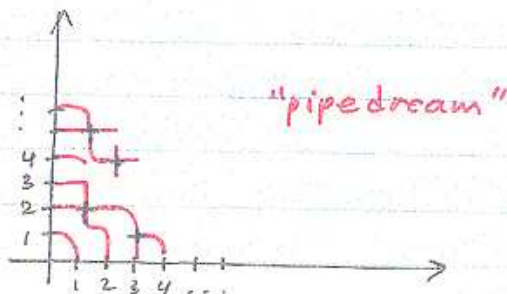 "pipedream"
⋮
4
3
2
1
1 2 3 4 ....